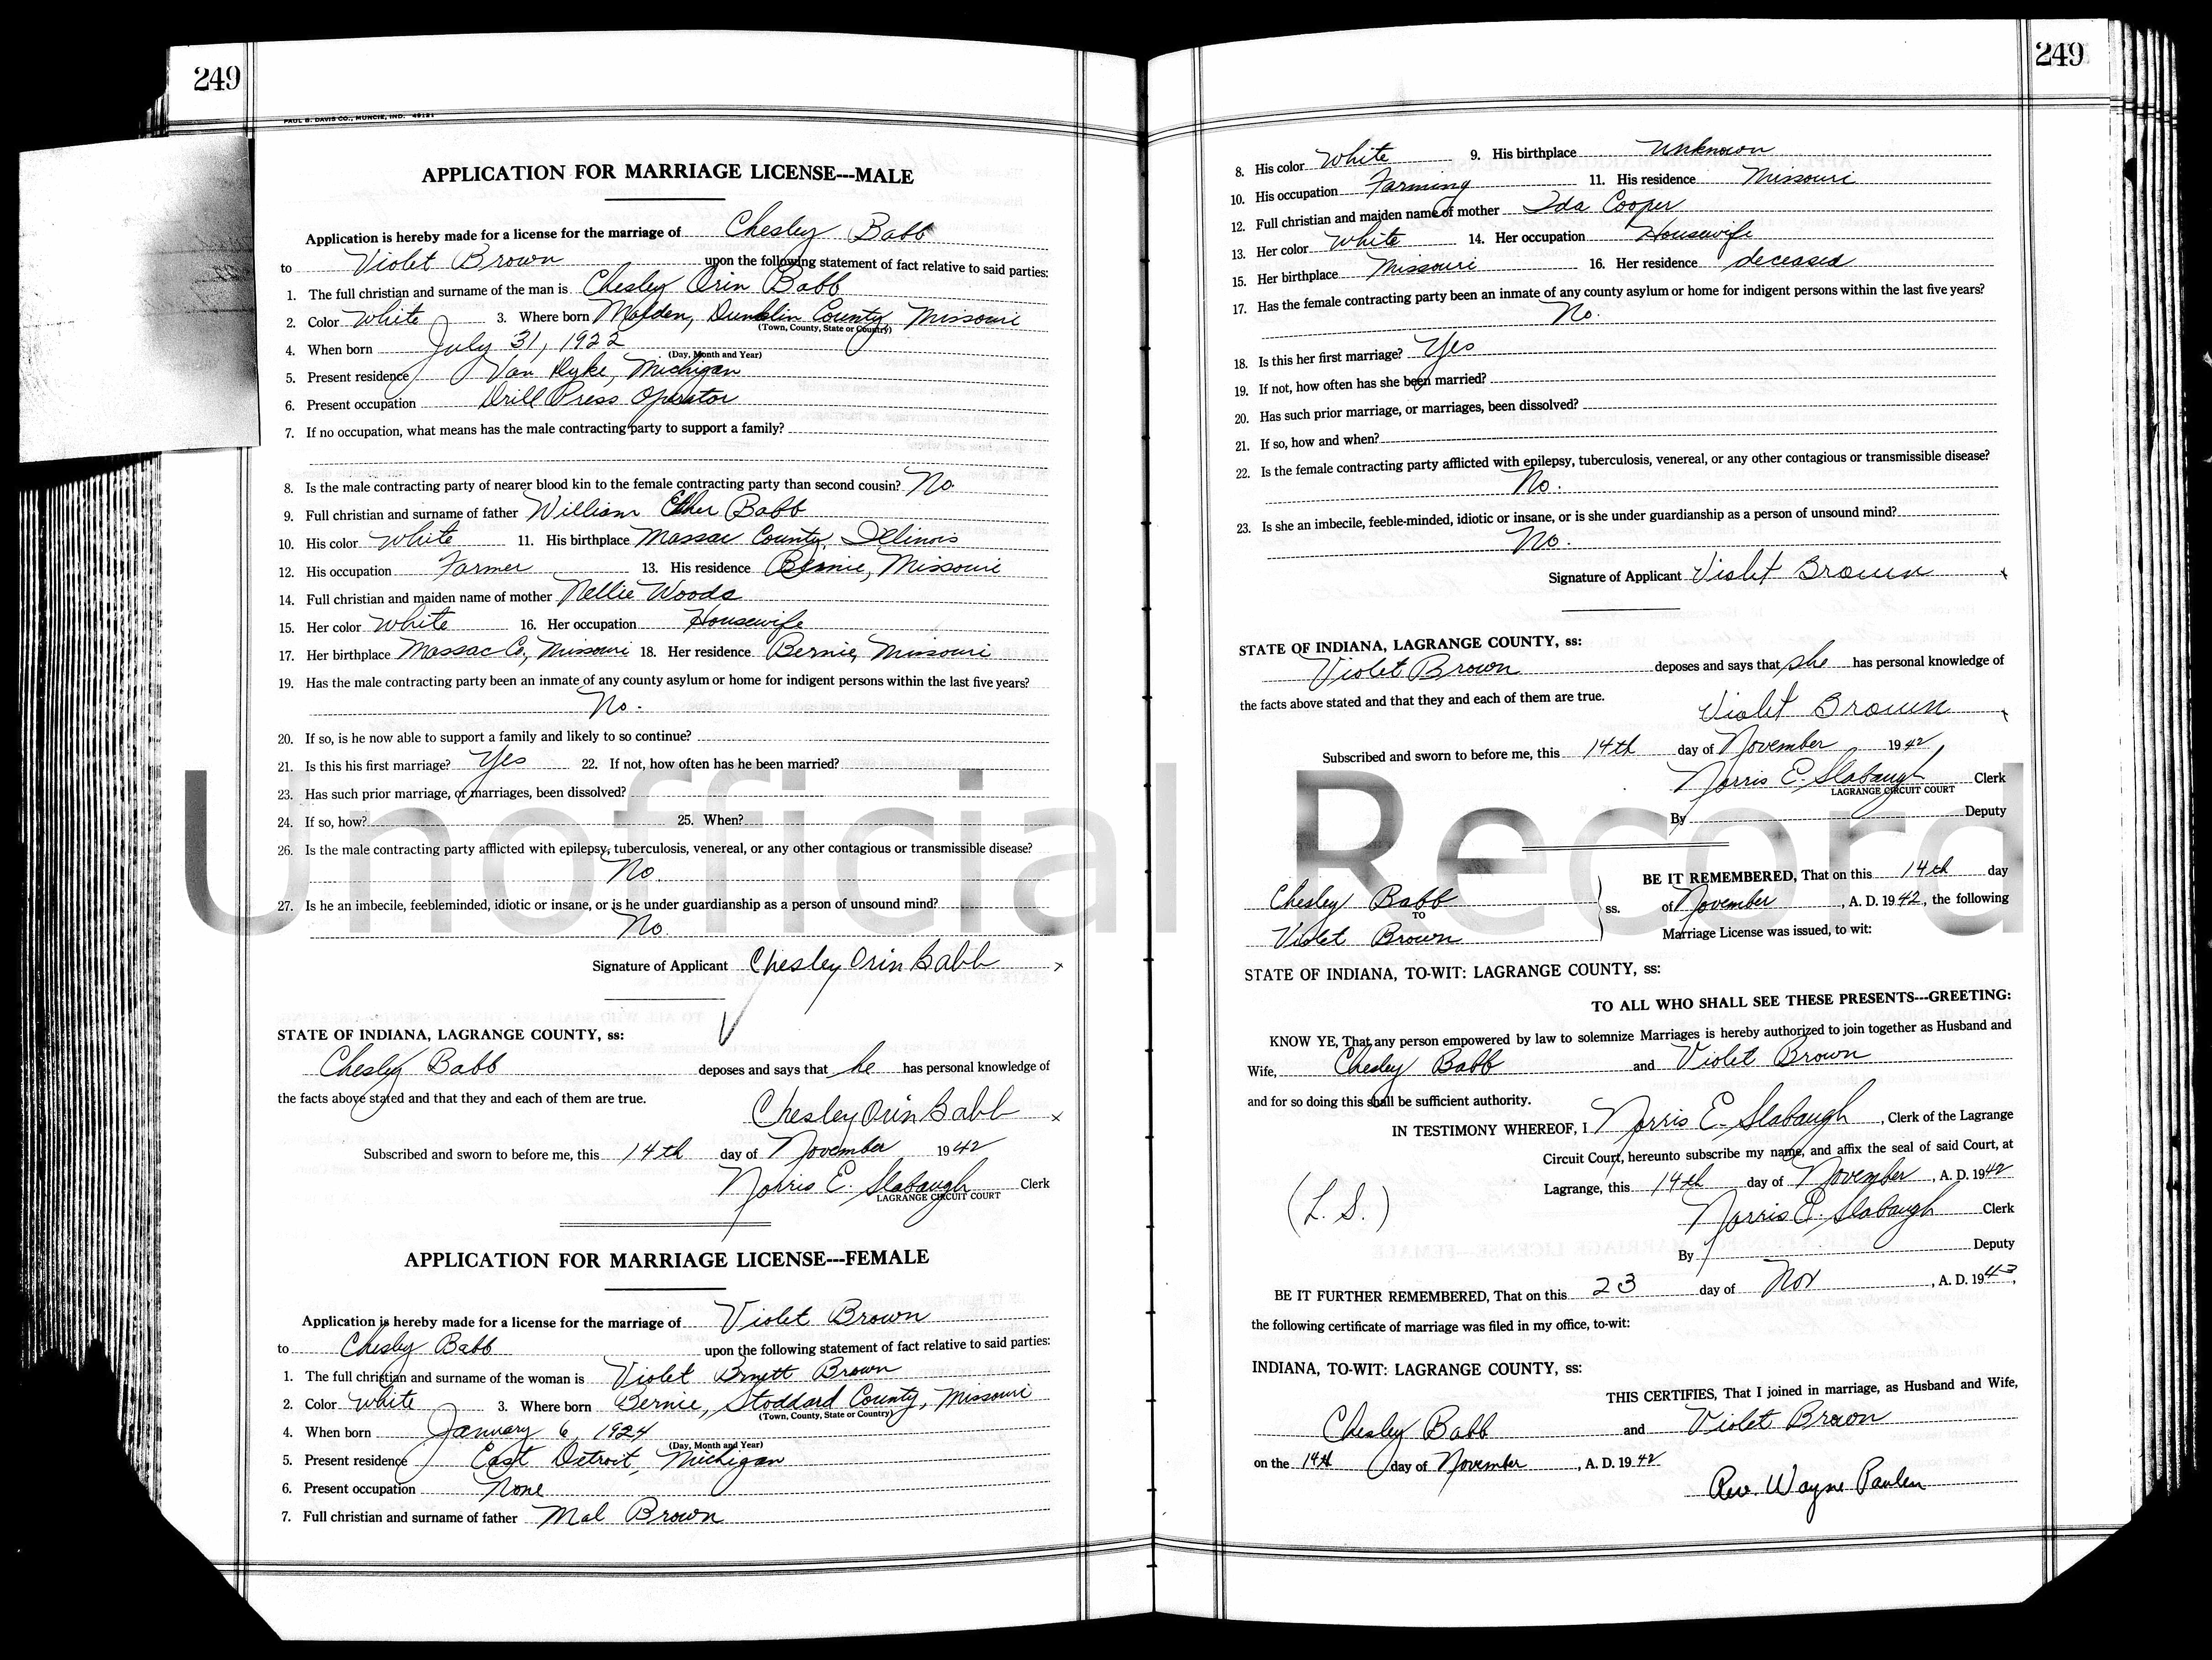 249
PAUL B. DAVIS CO., MUNCIE, IND. 48121
APPLICATION FOR MARRIAGE LICENSE---MALE
Application is hereby made for a license for the marriage of Chesley Babb
to Violet Brown upon the following statement of fact relative to said parties:
1. The full christian and surname of the man is Chesley Orin Babb
2. Color White 3. Where born Malden, Dunklin County, Missouri
(Town, County, State or Country)
4. When born July 31, 1922
(Day, Month and Year)
5. Present residence Van Dyke, Michigan
6. Present occupation Drill Press Operator
7. If no occupation, what means has the male contracting party to support a family?
8. Is the male contracting party of nearer blood kin to the female contracting party than second cousin? No.
9. Full christian and surname of father William Babb
10. His color White 11. His birthplace Massac County, Illinois
12. His occupation Farmer 13. His residence Bernie, Missouri
14. Full christian and maiden name of mother Nellie Woods
15. Her color White 16. Her occupation Housewife
17. Her birthplace Massac Co., Missouri 18. Her residence Bernie, Missouri
19. Has the male contracting party been an inmate of any county asylum or home for indigent persons within the last five years?
No.
20. If so, is he now able to support a family and likely to so continue?
21. Is this his first marriage? Yes 22. If not, how often has he been married?
23. Has such prior marriage, or marriages, been dissolved?
24. If so, how? 25. When?
26. Is the male contracting party afflicted with epilepsy, tuberculosis, venereal, or any other contagious or transmissible disease?
No.
27. Is he an imbecile, feebleminded, idiotic or insane, or is he under guardianship as a person of unsound mind?
No.
Signature of Applicant Chesley Orin Babb x
STATE OF INDIANA, LAGRANGE COUNTY, ss:
Chesley Babb deposes and says that he has personal knowledge of
the facts above stated and that they and each of them are true.
Chesley Orin Babb x
Subscribed and sworn to before me, this 14th day of November 1942
Norris E. Slabaugh Clerk
LAGRANGE CIRCUIT COURT
APPLICATION FOR MARRIAGE LICENSE---FEMALE
Application is hereby made for a license for the marriage of Violet Brown
to Chesley Babb upon the following statement of fact relative to said parties:
1. The full christian and surname of the woman is Violet Brown
2. Color White 3. Where born Bernie, Stoddard County, Missouri
(Town, County, State or Country)
4. When born January 6, 1924
(Day, Month and Year)
5. Present residence East Detroit, Michigan
6. Present occupation None
7. Full christian and surname of father Mal Brown
249
8. His color White 9. His birthplace Unknown
10. His occupation Farming 11. His residence Missouri
12. Full christian and maiden name of mother Ida Cooper
13. Her color White 14. Her occupation Housewife
15. Her birthplace Missouri 16. Her residence deceased
17. Has the female contracting party been an inmate of any county asylum or home for indigent persons within the last five years?
No.
18. Is this her first marriage? Yes
19. If not, how often has she been married?
20. Has such prior marriage, or marriages, been dissolved?
21. If so, how and when?
22. Is the female contracting party afflicted with epilepsy, tuberculosis, venereal, or any other contagious or transmissible disease?
No.
23. Is she an imbecile, feeble-minded, idiotic or insane, or is she under guardianship as a person of unsound mind?
No.
Signature of Applicant Violet Brown x
STATE OF INDIANA, LAGRANGE COUNTY, ss:
Violet Brown deposes and says that she has personal knowledge of
the facts above stated and that they and each of them are true.
Violet Brown x
Subscribed and sworn to before me, this 14th day of November 1942
Norris E. Slabaugh Clerk
LAGRANGE CIRCUIT COURT
By Deputy
BE IT REMEMBERED, That on this 14th day
Chesley Babb
TO
Violet Brown
ss.
of November, A. D. 1942, the following
Marriage License was issued, to wit:
STATE OF INDIANA, TO-WIT: LAGRANGE COUNTY, ss:
TO ALL WHO SHALL SEE THESE PRESENTS---GREETING:
KNOW YE, That any person empowered by law to solemnize Marriages is hereby authorized to join together as Husband and
Wife, Chesley Babb and Violet Brown
and for so doing this shall be sufficient authority.
IN TESTIMONY WHEREOF, I Norris E. Slabaugh, Clerk of the Lagrange
Circuit Court, hereunto subscribe my name, and affix the seal of said Court, at
Lagrange, this 14th day of November, A. D. 1942
(L. S.)
Norris E. Slabaugh Clerk
By Deputy
BE IT FURTHER REMEMBERED, That on this 23 day of Nov, A. D. 1943,
the following certificate of marriage was filed in my office, to-wit:
INDIANA, TO-WIT: LAGRANGE COUNTY, ss:
THIS CERTIFIES, That I joined in marriage, as Husband and Wife,
Chesley Babb and Violet Brown
on the 14th day of November, A. D. 1942
Rev. Wayne Paulen
Unofficial Record